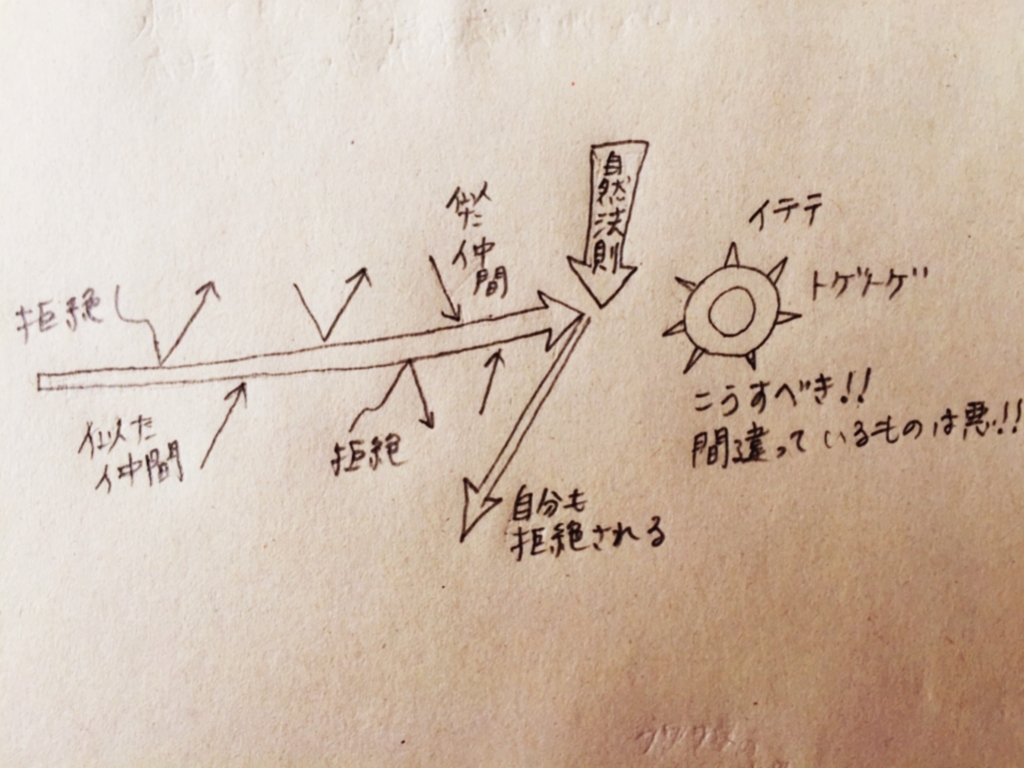 自然法則
似た
仲間
イテテ
トゲトゲ
拒絶
こうすべき!!
間違っているものは悪!!
似た
仲間
拒絶
自分も
拒絶される